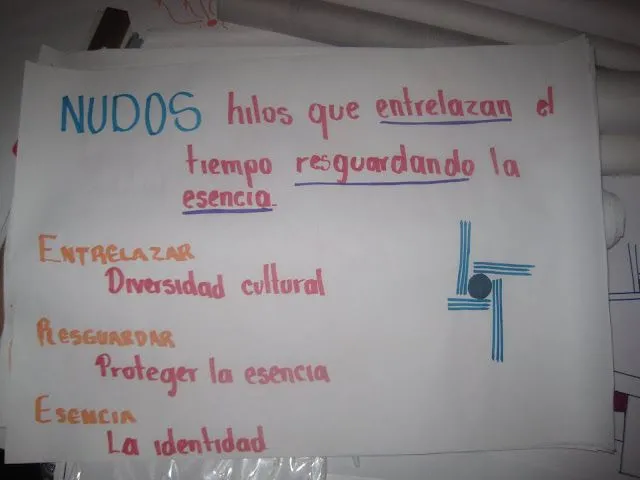 NUDOS hilos que entrelazan el
tiempo resguardando la
esencia.
ENTRELAZAR
Diversidad cultural
RESGUARDAR
Proteger la esencia
ESENCIA
La identidad